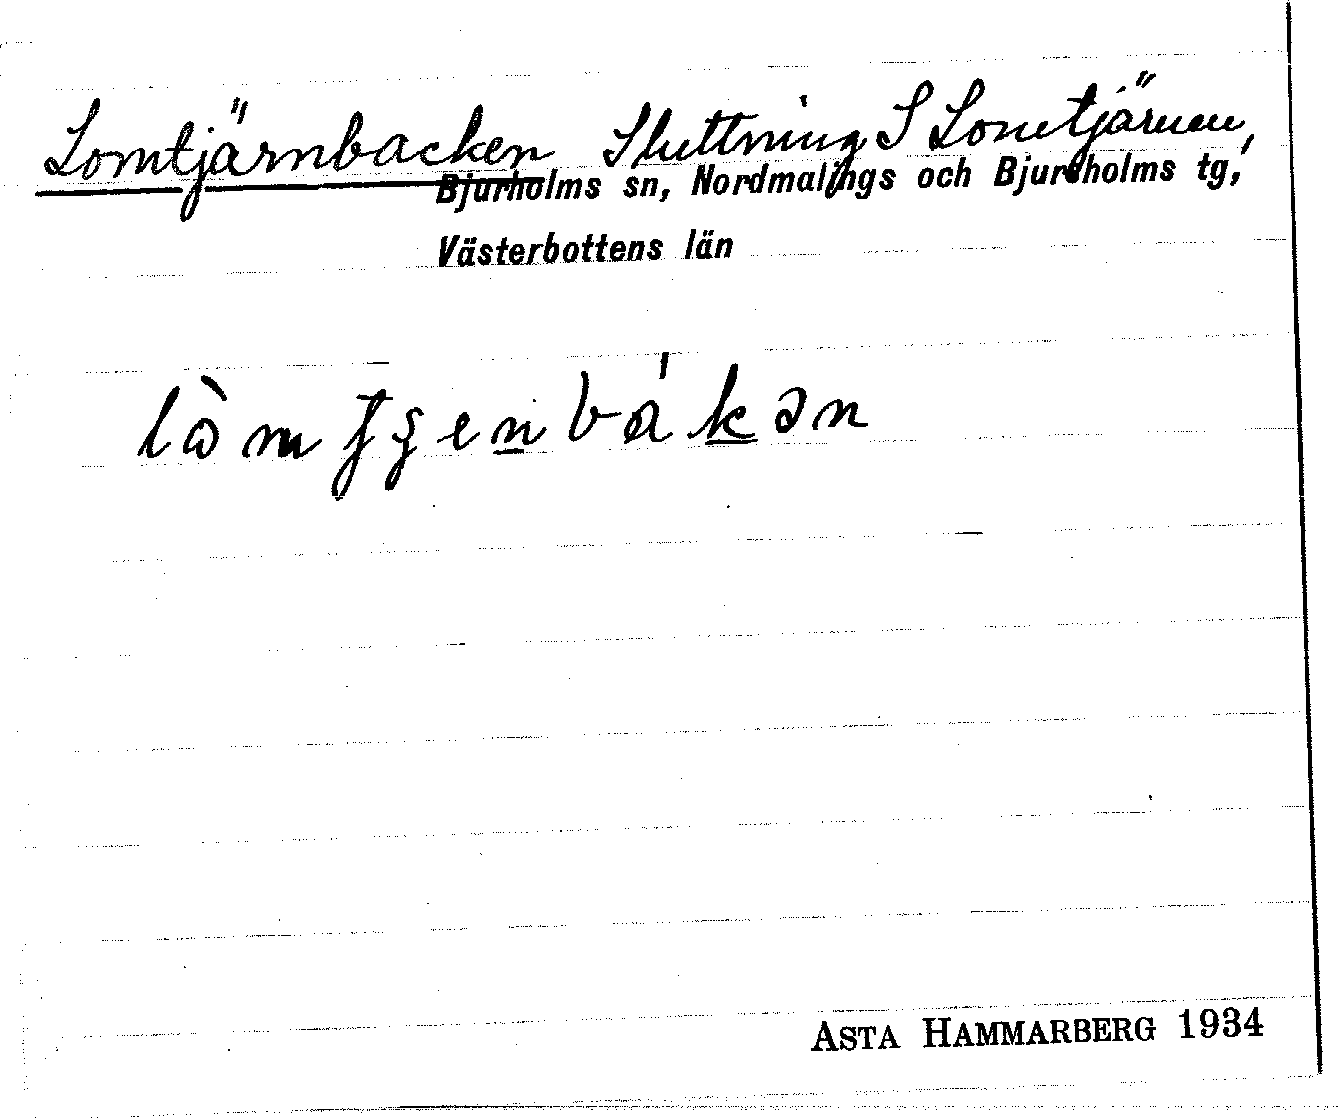 Lomtjärnbacken Sluttning S Lomtjärnen,
Bjurholms sn, Nordmalings och Bjurholms tg,
Västerbottens län
ASTA HAMMARBERG 1934